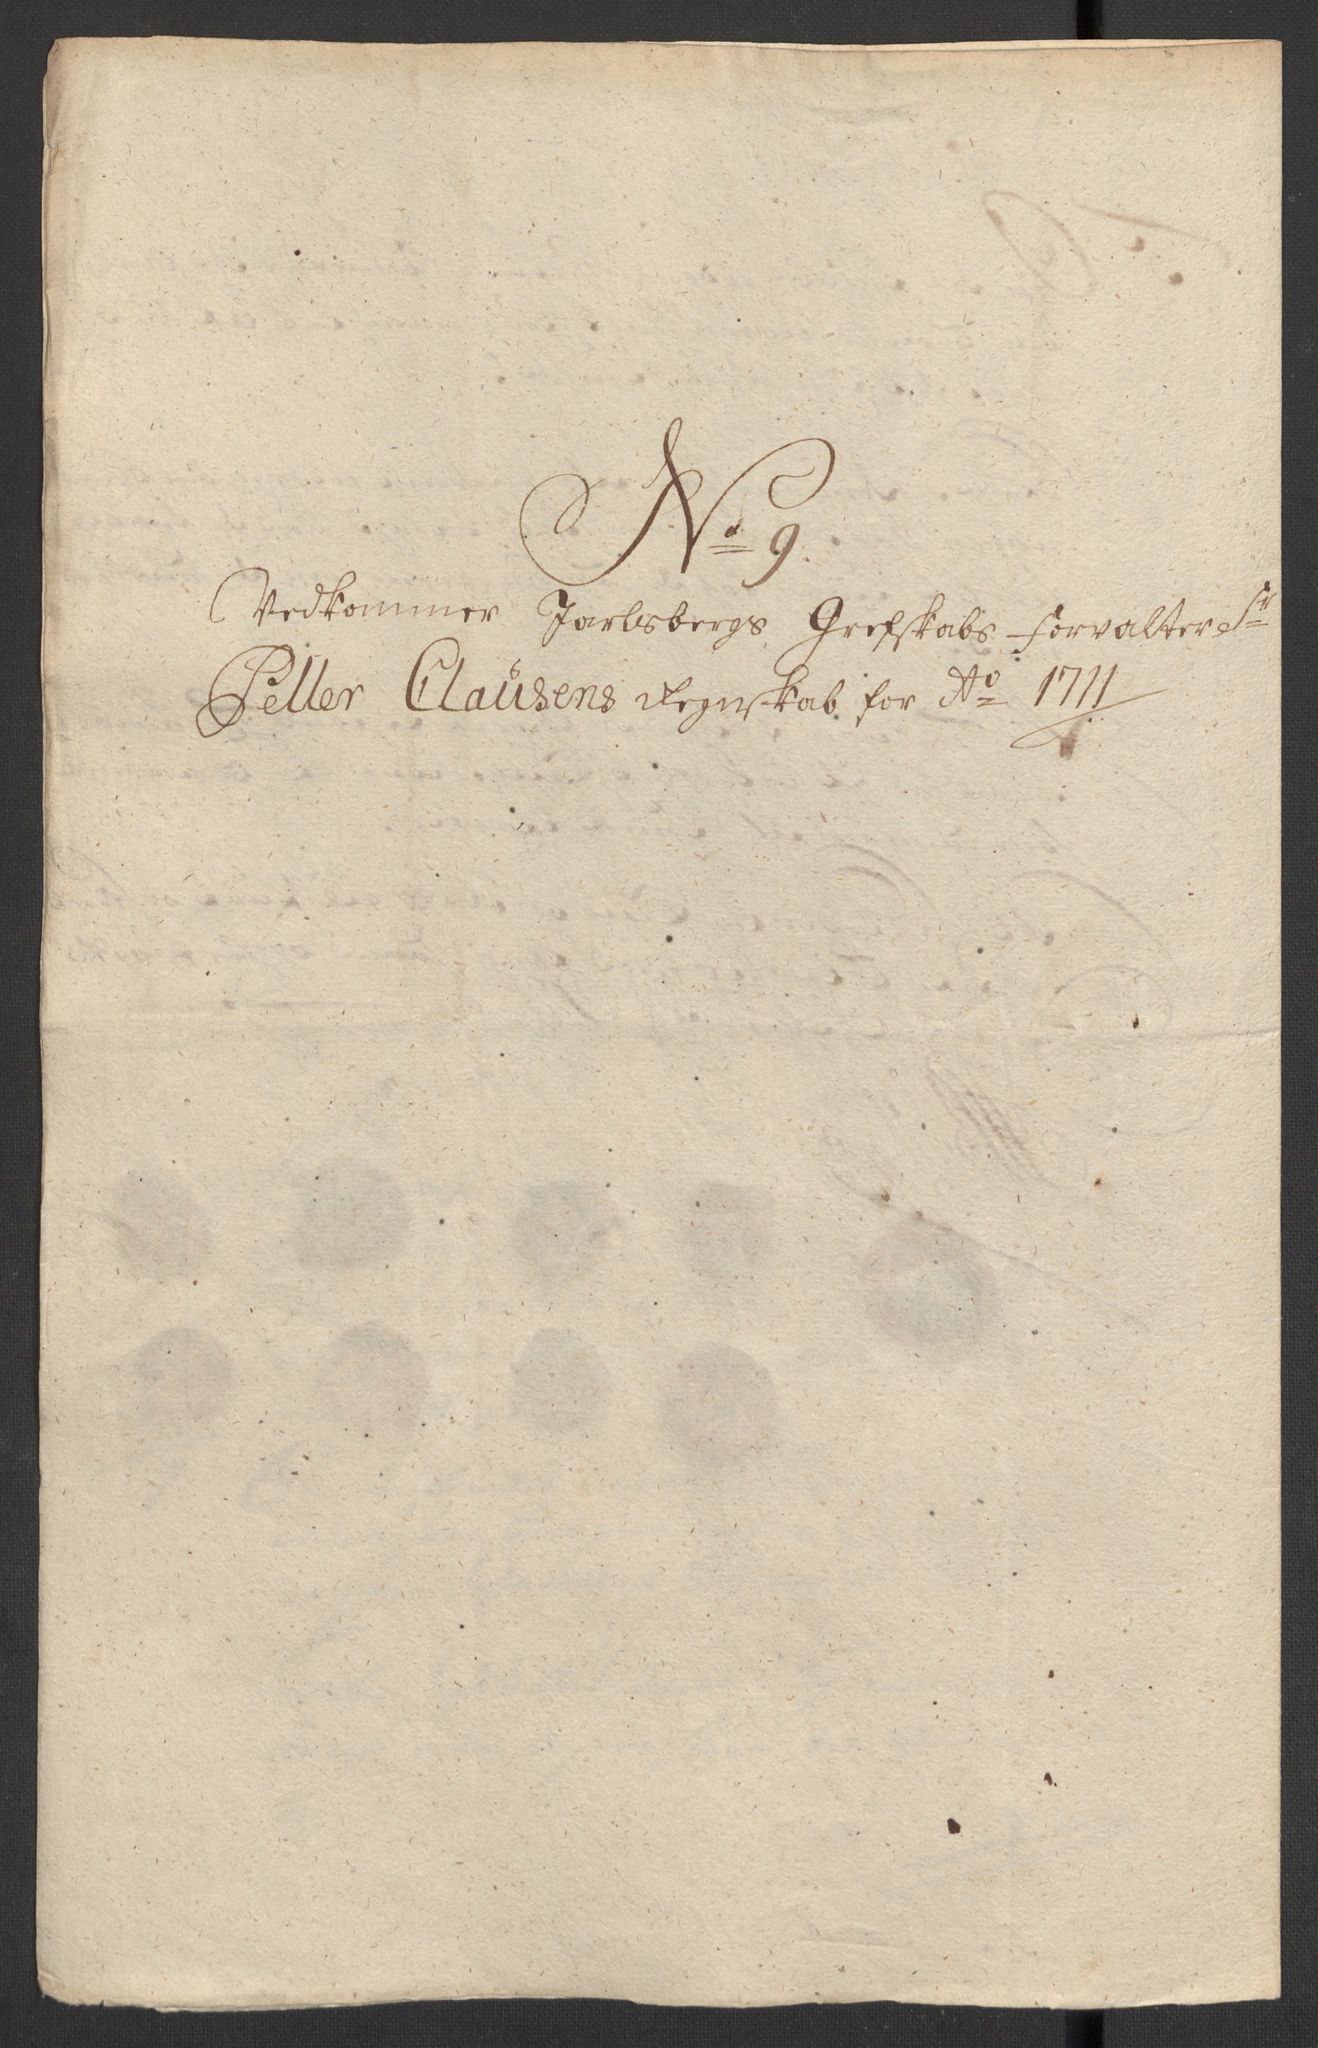 No 9
Vedkommer Jarlsbergs Grefskabs forvalter Sr
Petter Clausens Regnskab for Ao 1711